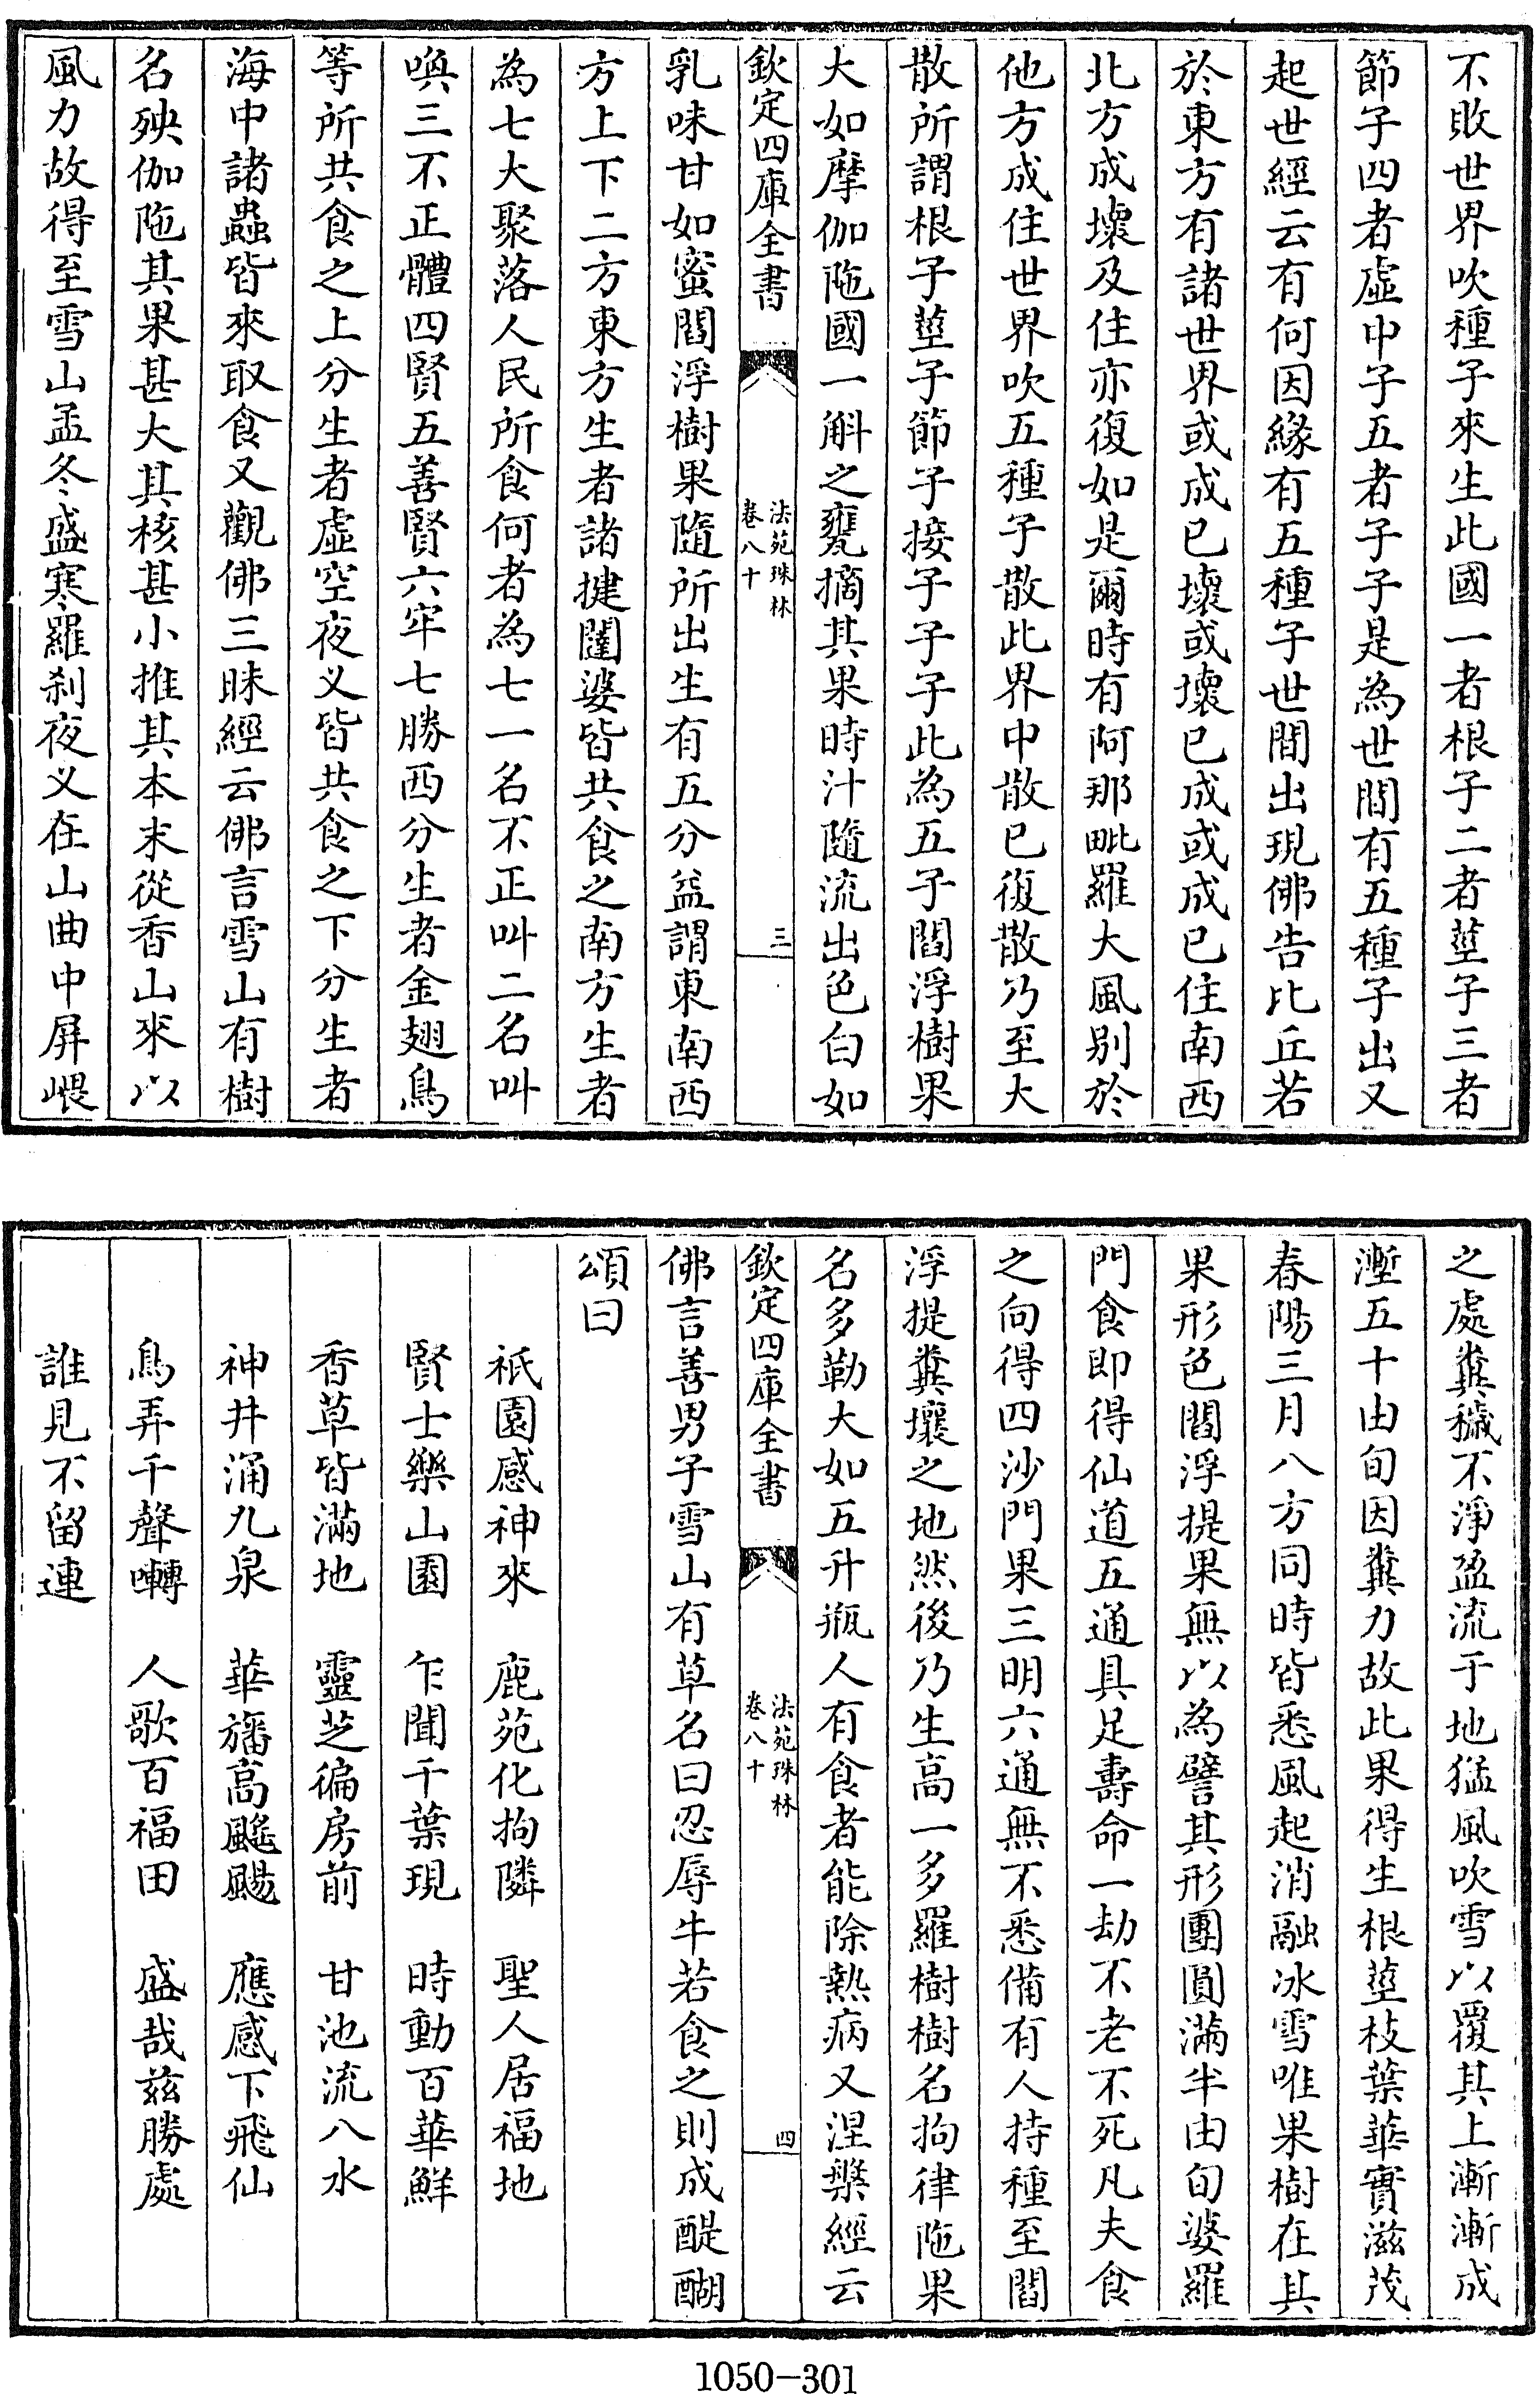 不敗世界吹種子來生此國一者根子二者莖子三者
節子四者虛中子五者子子是為世間有五種子出又
起世經云有何因緣有五種子世間出現佛告比丘若
於東方有諸世界或成已壞或壞已成或成已住南西
北方成壞及住亦復如是爾時有阿那毗羅大風别於
他方成住世界吹五種子散此界中散已復散乃至大
散所謂根子莖子節子接子子子此為五子閻浮樹果
大如摩伽陁國一斛之甕摘其果時汁隨流出色白如
欽定四庫全書
法苑珠林
卷八十
三
乳味甘如蜜閻浮樹果隨所出生有五分益謂東南西
方上下二方東方生者諸揵闥婆皆共食之南方生者
為七大聚落人民所食何者為七一名不正叫二名叫
喚三不正體四賢五善賢六牢七勝西分生者金翅鳥
等所共食之上分生者虛空夜义皆共食之下分生者
海中諸蟲皆來取食又觀佛三昧經云佛言雪山有樹
名殃伽陁其果甚大其核甚小推其本末從香山來以
風力故得至雪山孟冬盛寒羅刹夜义在山曲中屏㟪
之處糞穢不淨盈流于地猛風吹雪以覆其上漸漸成
壍五十由旬因糞力故此果得生根莖枝葉華實滋茂
春陽三月八方同時皆悉風起消融冰雪唯果樹在其
果形色閻浮提果無以為譬其形團圓滿半由旬婆羅
門食即得仙道五通具足壽命一劫不老不死凡夫食
之向得四沙門果三明六通無不悉備有人持種至閻
浮提糞壤之地然後乃生高一多羅樹樹名拘律陁果
名多勒大如五升瓶人有食者能除熱病又涅槃經云
欽定四庫全書
法苑珠林
卷八十
四
佛言善男子雪山有草名曰忍辱牛若食之則成醍醐
頌曰
祇園感神來　鹿苑化拘隣　聖人居福地
賢士樂山園　乍聞千葉現　時動百華鮮
香草皆滿地　靈芝徧房前　甘池流八水
神井涌九泉　華旛高飈颺　應感下飛仙
鳥弄千聲囀　人歌百福田　盛哉兹勝處
誰見不留連
1050-301